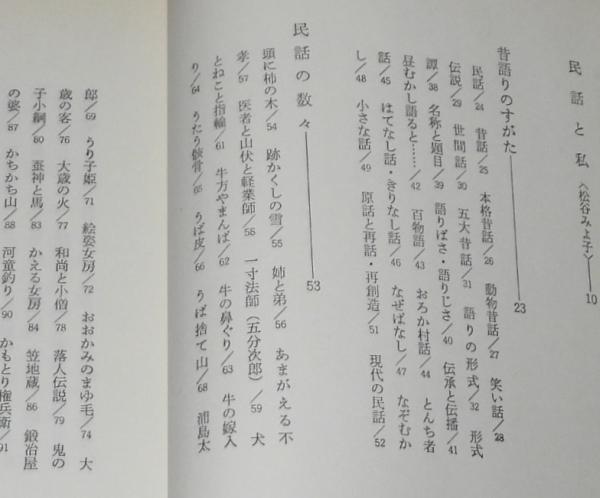 民話と私〈松谷みよ子〉――10
昔語りのすがた――23
民話/24 昔話/25 本格昔話/26 動物昔話/27 笑い話/28
伝説/29 世間話/30 五大昔話/31 語りの形式/32 形式
譚/38 名称と題目/39 語りばさ・語りじさ/40 伝承と伝播/41
昼むかし語ると……/42 百物語/43 おろか村話/44 とんち者
話/45 はてなし話・きりなし話/46 なぜばなし/47 なぞむか
し/48 小さな話/49 原話と再話・再創造/51 現代の民話/52
民話の数々――53
頭に柿の木/54 跡かくしの雪/55 姉と弟/56 あまがえる不
孝/57 医者と山伏と軽業師/58 一寸法師(五分次郎)/59 犬
とねこと指輪/61 牛方やまんば/62 牛の鼻ぐり/63 牛の嫁入
り/64 うたう骸骨/65 うば皮/66 うば捨て山/68 浦島太
郎/69 うり子姫/71 絵姿女房/72 おおかみのまゆ毛/74 大
歳の客/76 大歳の火/77 和尚と小僧/78 落人伝説/79 鬼の
子小綱/80 蚕神と馬/83 かえる女房/84 笠地蔵/86 鍛冶屋
の婆/87 かちかち山/88 河童釣り/90 かもとり権兵衛/91